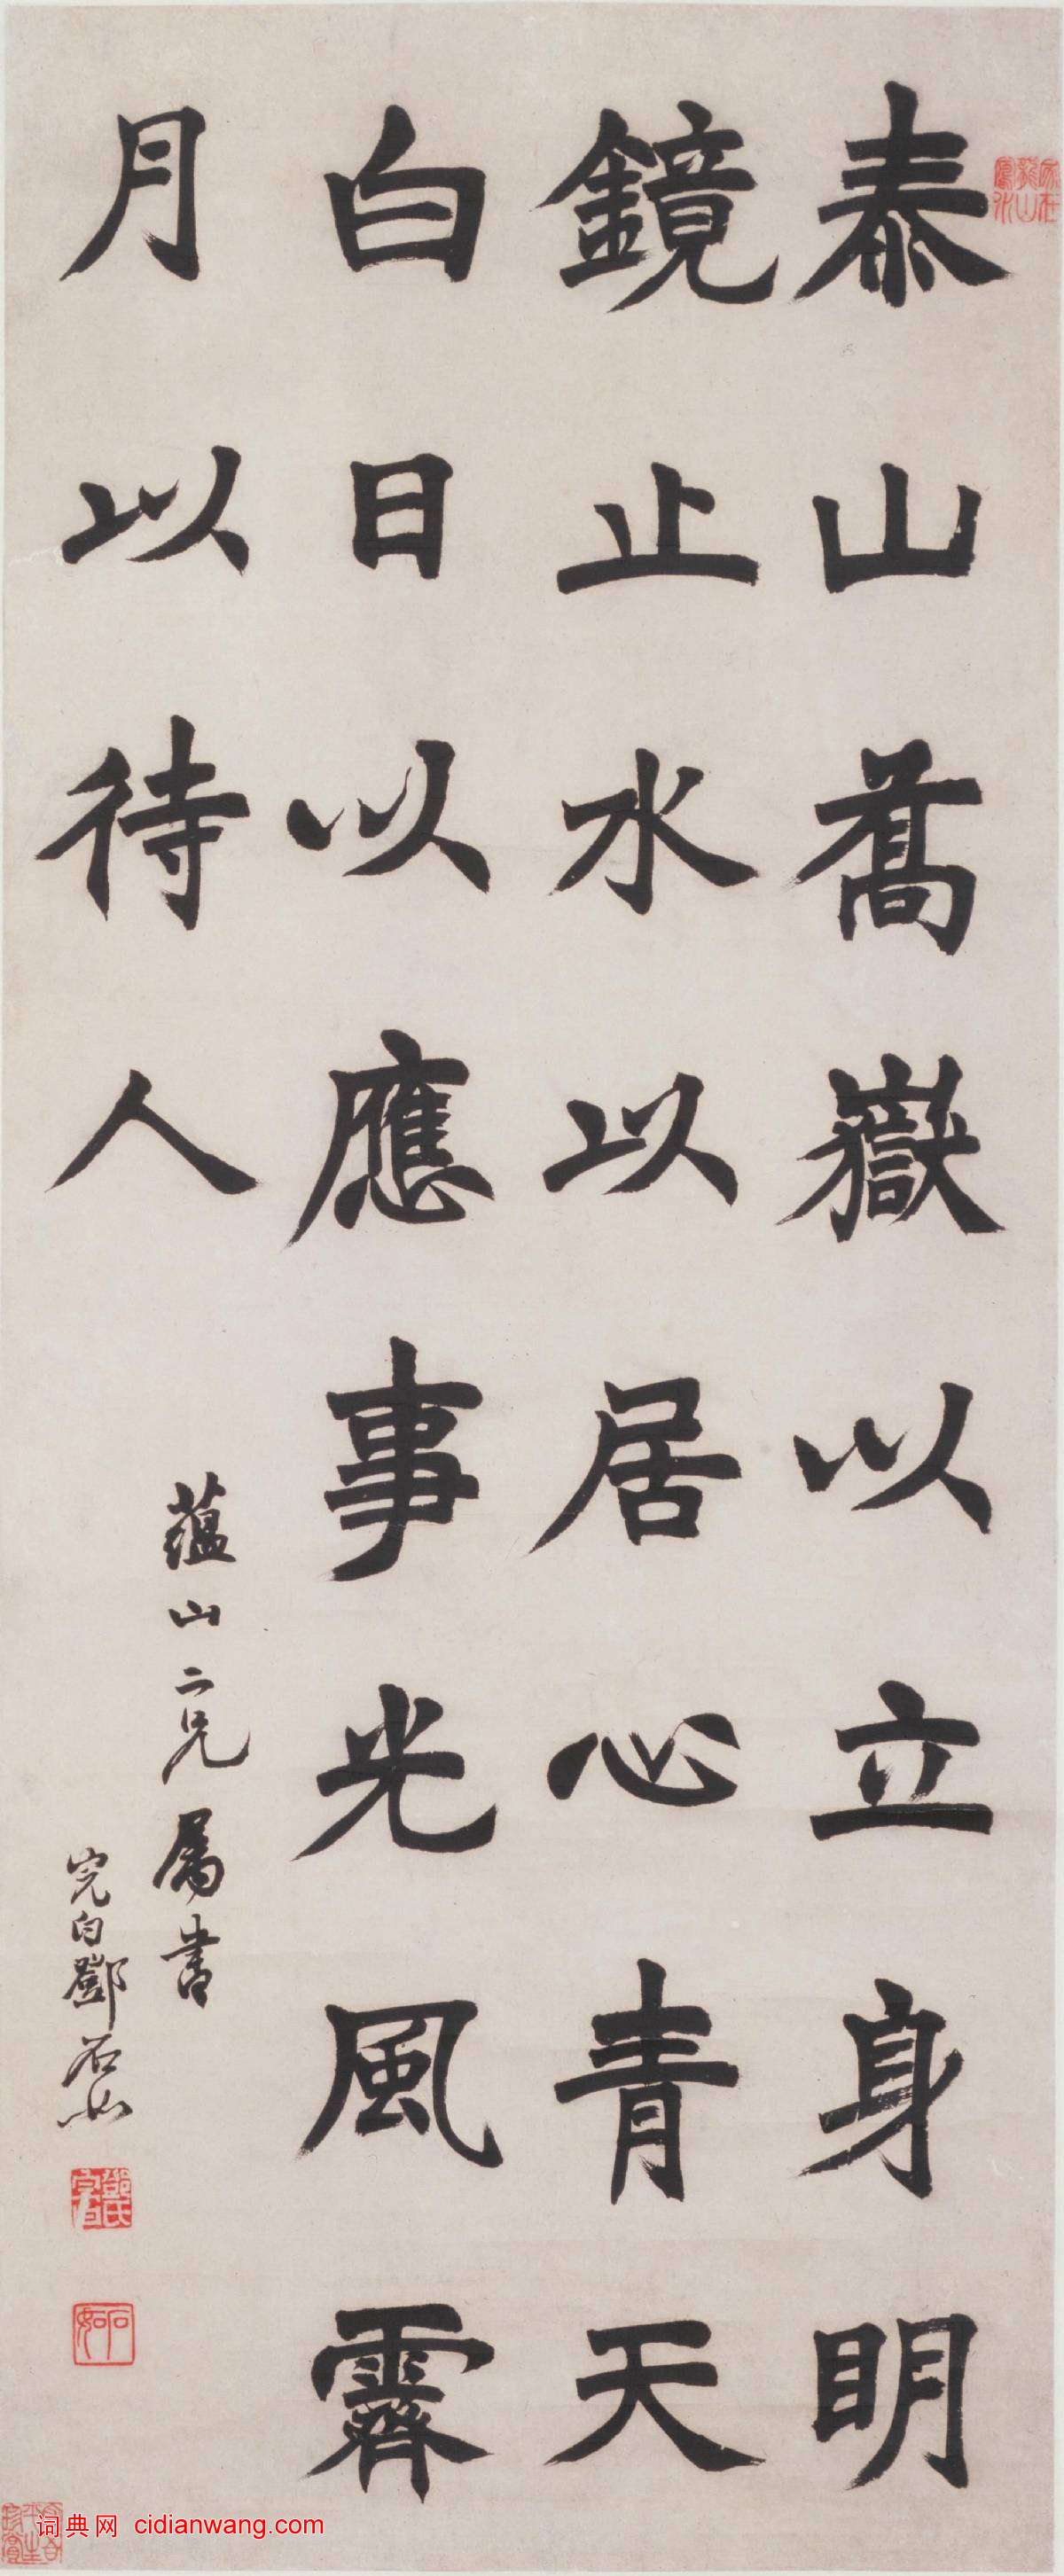 泰山喬嶽以立身明
鏡止水以居心青天
白日以應事光風霽
月以待人
蘊山二兄屬書
完白鄧石如
家在龍山鳳水
鄧氏完白
石如
詞典网 cidianwang.com